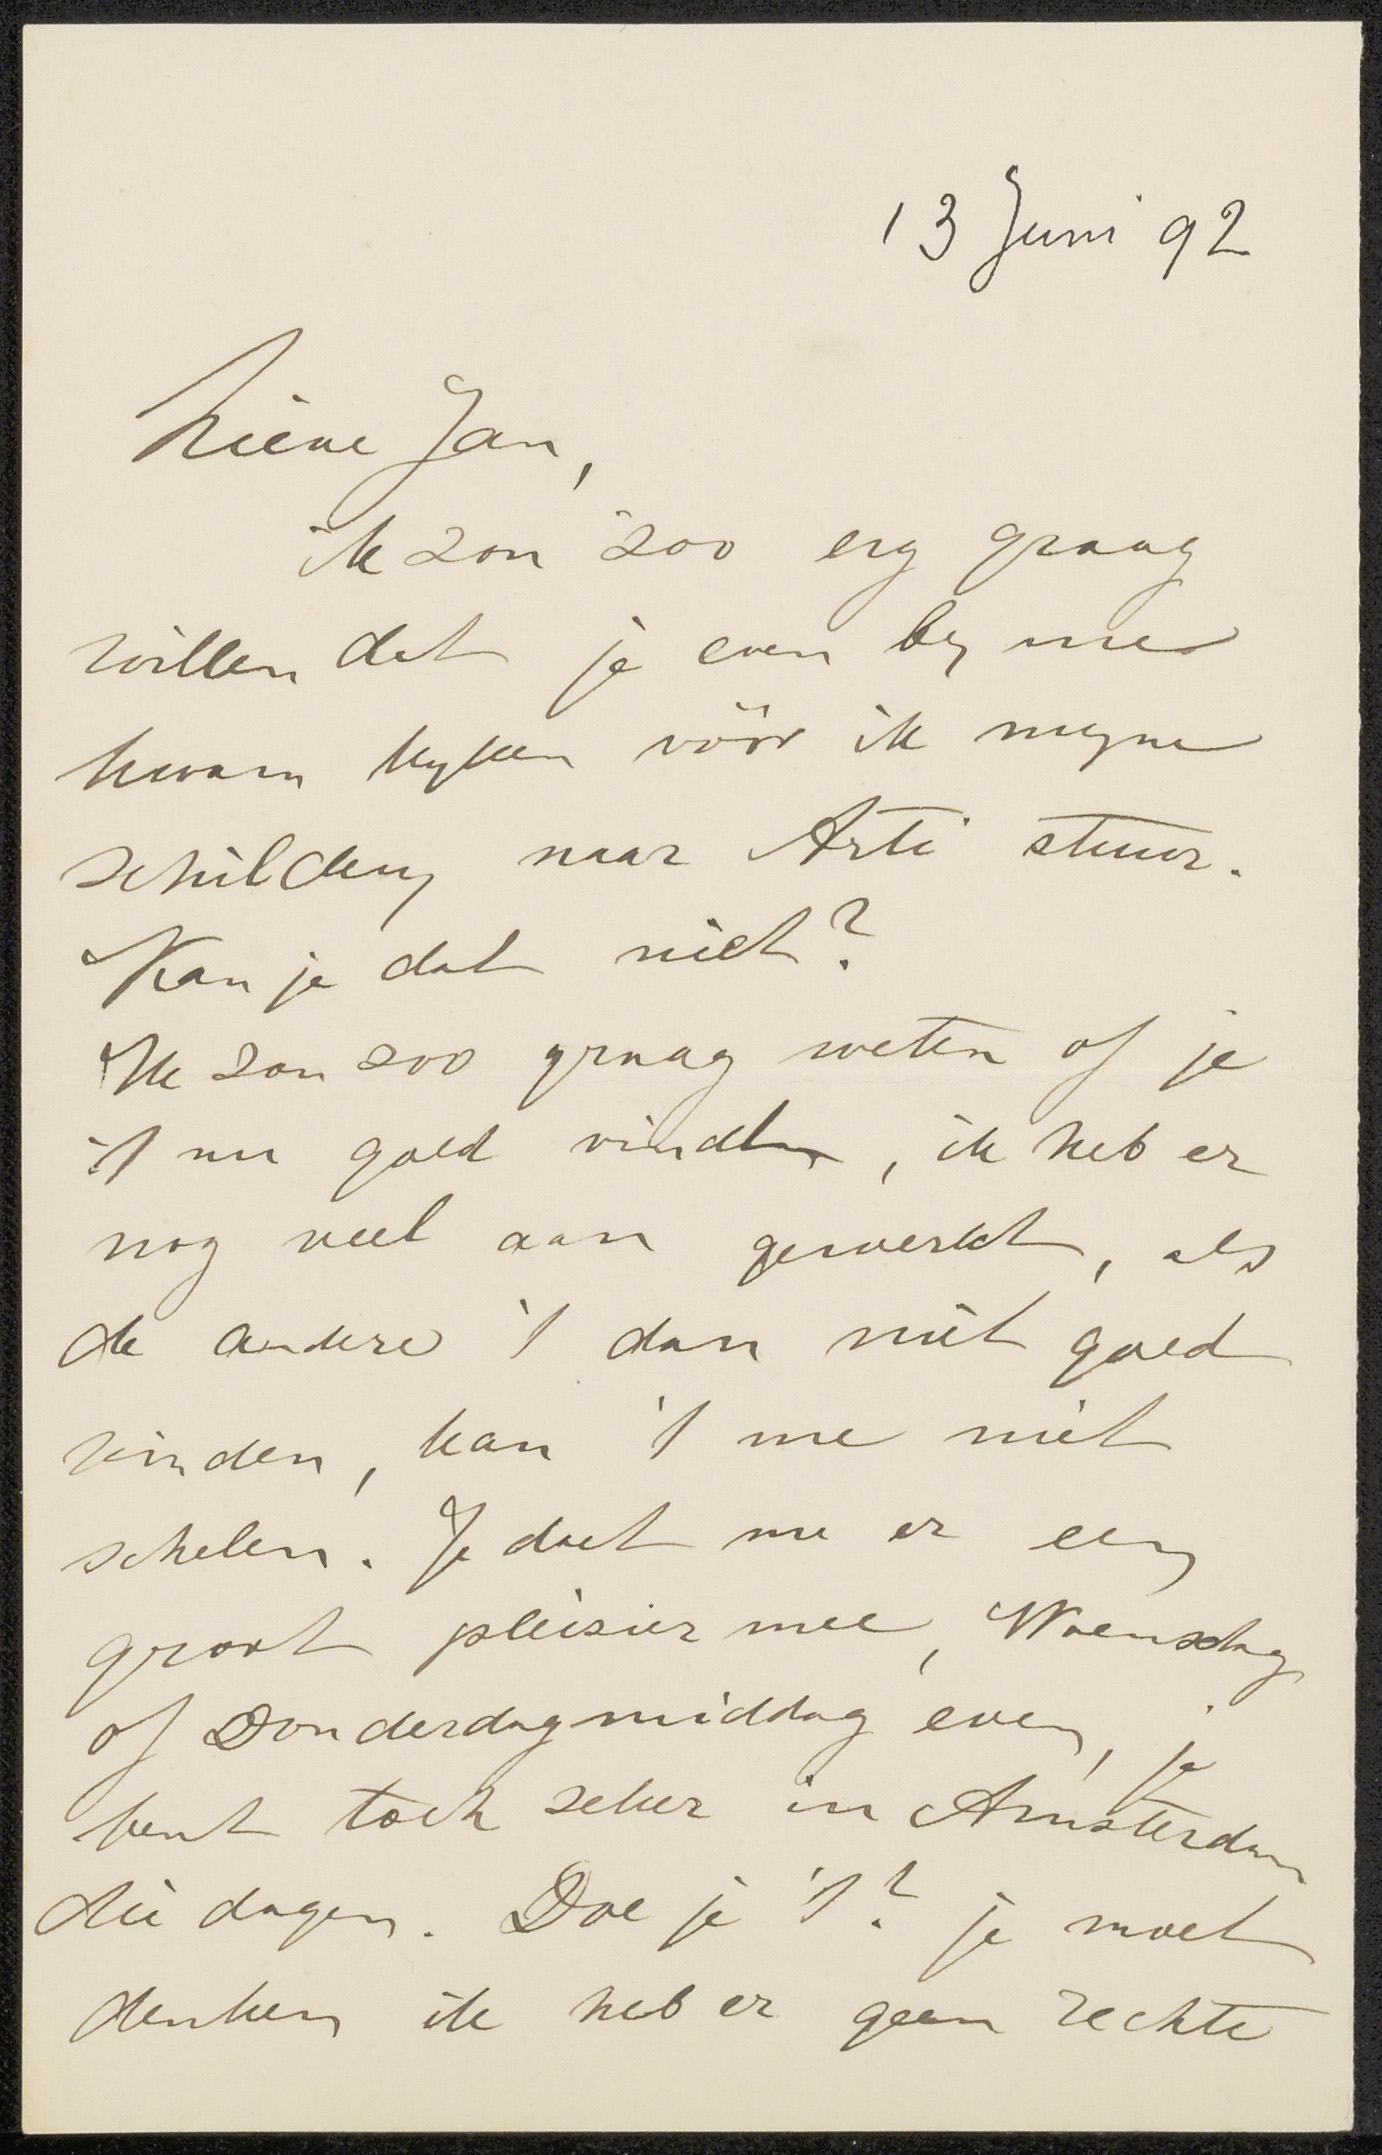 13 Juni 92
Lieve Jan,
ik zou zoo erg graag
willen dat je even by me
kwam kyken vóór ik myne
schildery naar Arti stuur.
Kan je dat niet?
Ik zou zoo graag weten of je
't nu goed vindt, ik heb er
nog veel aan gewerkt, als
de andere 't dan niet goed
vinden, kan 't me niet
schelen. Je doet me er een
groot pleisier mee, Woensdag
of Donderdagmiddag even, je
bent toch zeker in Amsterdam
die dagen. Doe je 't? je moet
denken ik heb er geen rechte